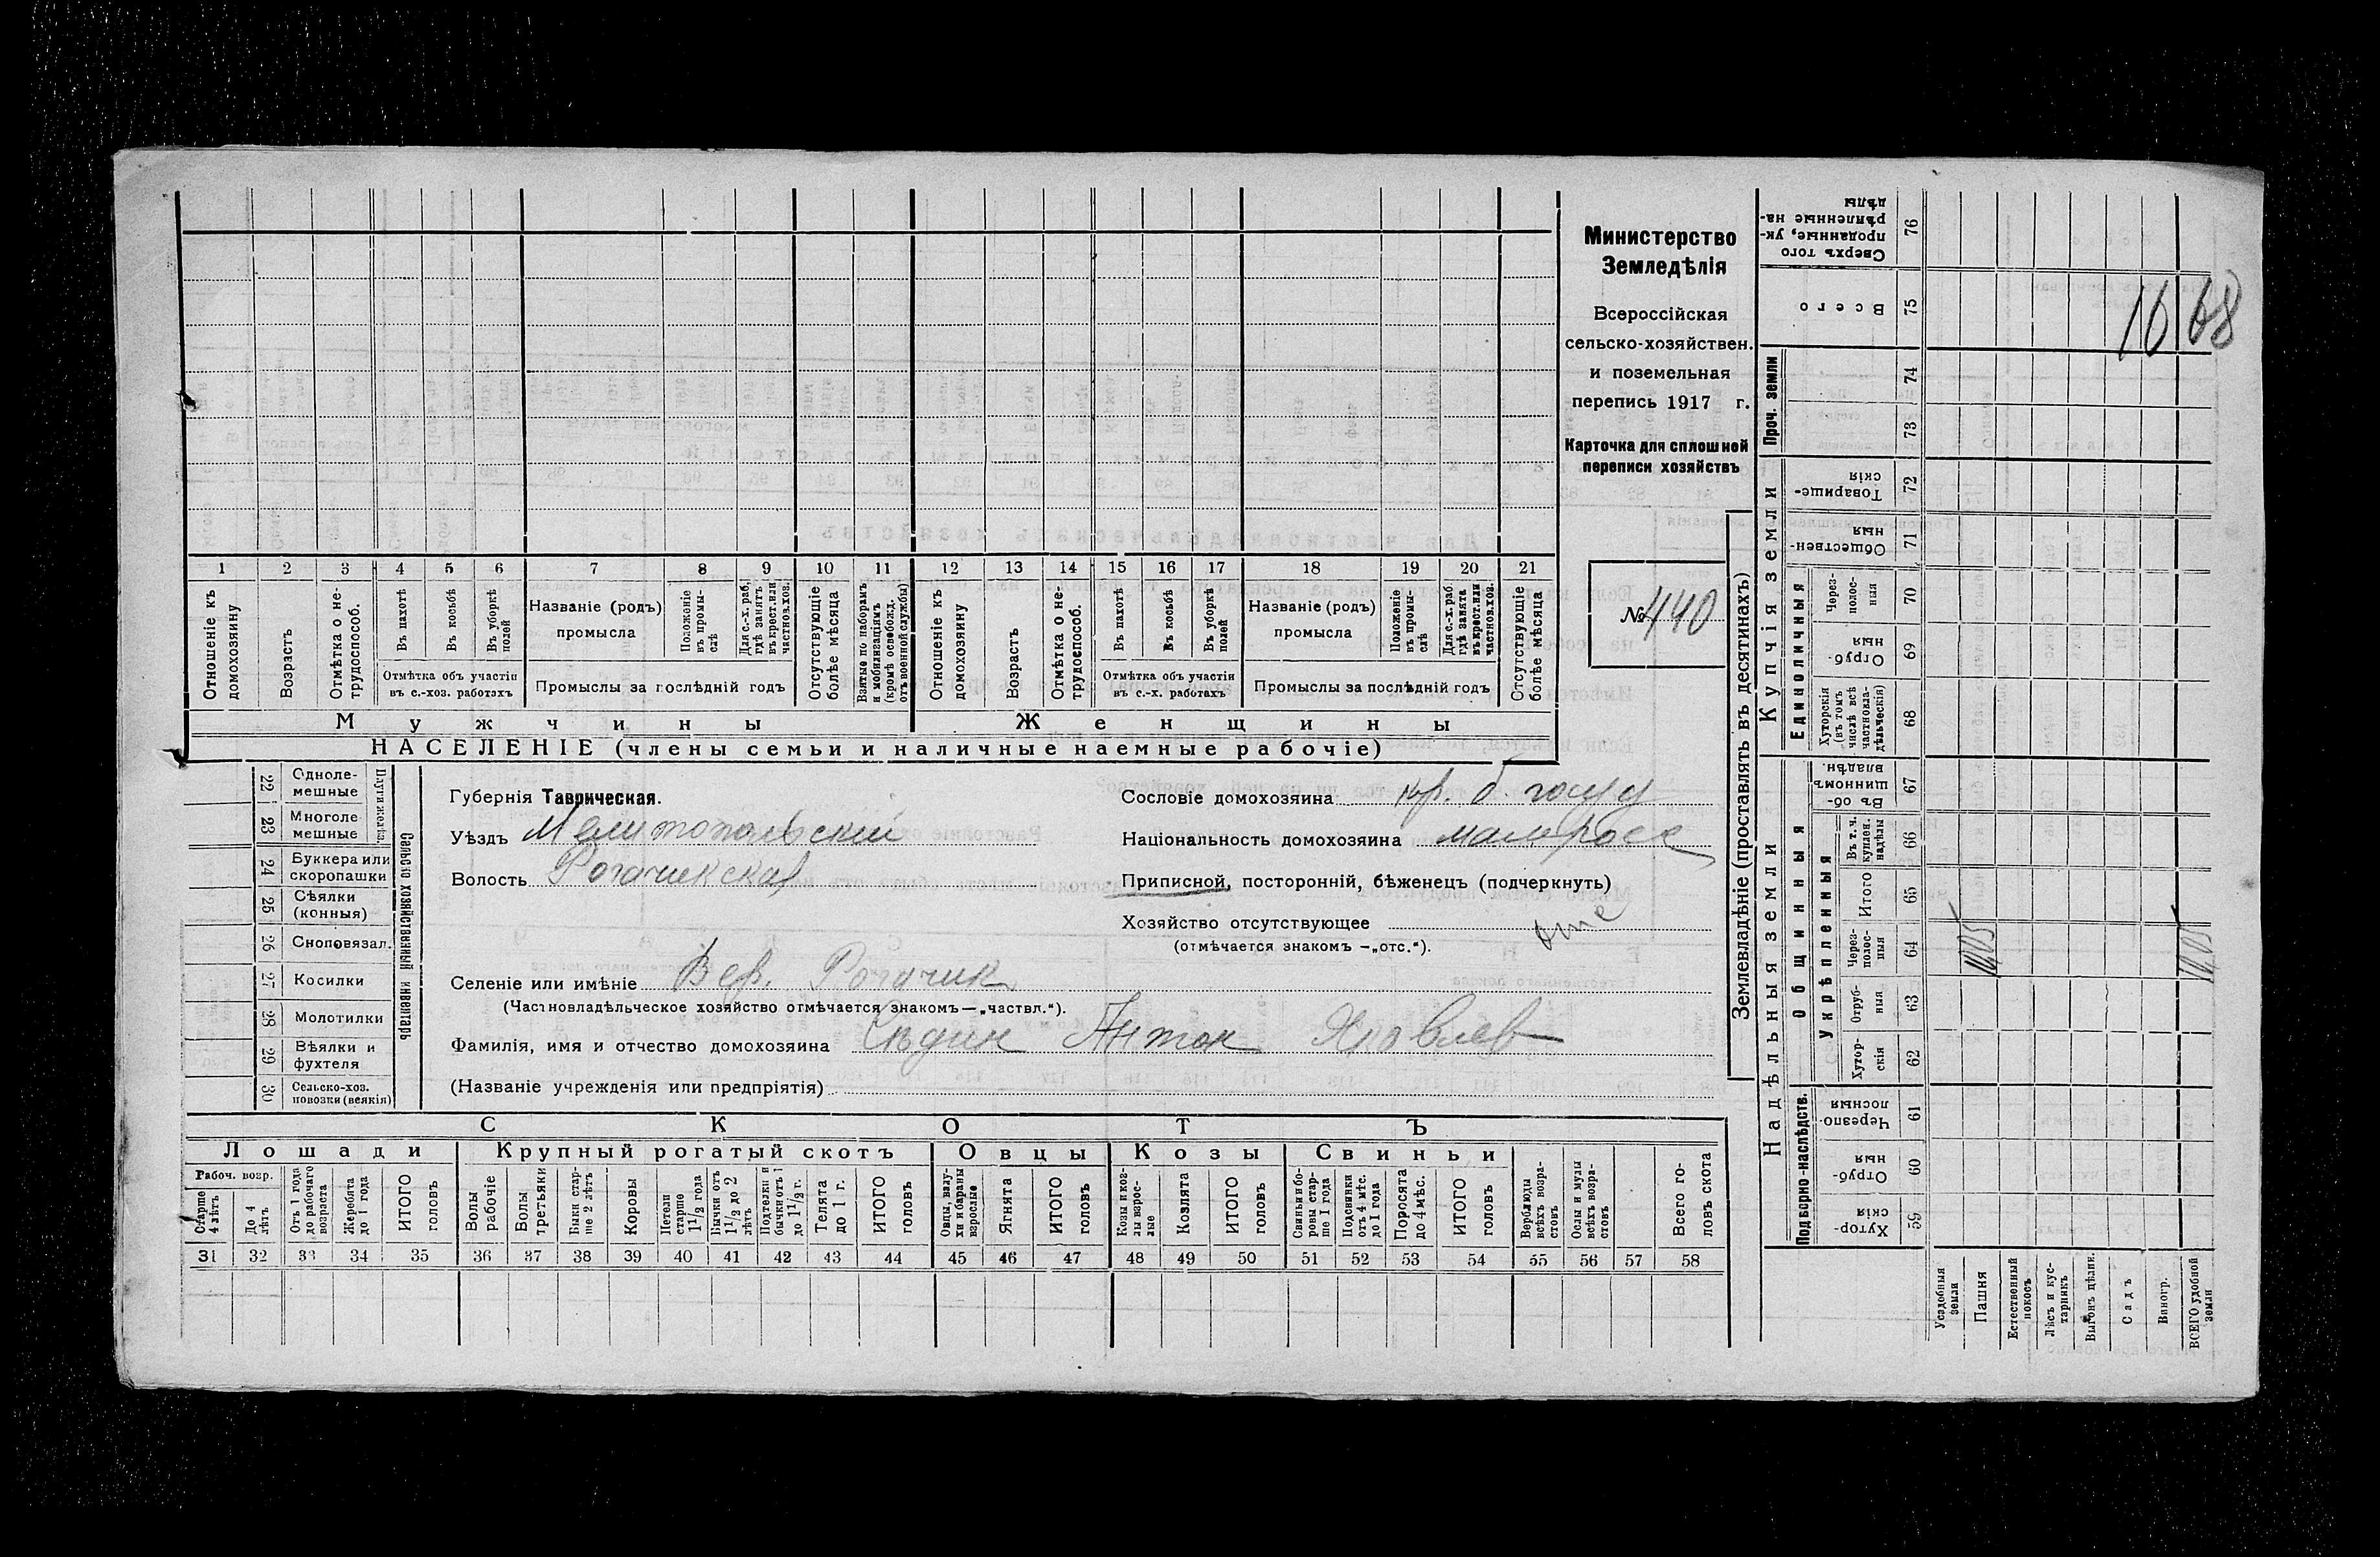 1 2 3 4 5 6 7 8 9 10 11 12 13 14 15 16 17 18 19 20 21
Отношеніе къ домохозяину
Возрастъ
Отмѣтка о не-
трудоспособ.
Въ пахотѣ
Въ косьбѣ
Въ уборкѣ
полей
Отмѣтка объ участіи
въ с.-хоз. работахъ
Названіе (родъ)
промысла
Положеніе
въ промы-
слѣ
Для с.-х. раб.,
гдѣ занятъ
въ крест. или
частнов. хоз.
Промыслы за послѣдній годъ
Отсутствующіе
болѣе мѣсяца
Взятые по наборамъ
и мобилизаціямъ
(кромѣ освобожд.
отъ военной службы)
Отношеніе къ
домохозяину
Возрастъ
Отмѣтка о не-
трудоспособ.
Въ пахотѣ
Въ косьбѣ
Въ уборкѣ
полей
Отмѣтка объ участіи
въ с.-х. работахъ
Названіе (родъ)
промысла
Положеніе
въ промы-
слѣ
Для с.-х. раб.
гдѣ занята
въ крест. или
частнов. хоз.
Промыслы за послѣдній годъ
Отсутствующіе
болѣе мѣсяца
Мужчины
Женщины
НАСЕЛЕНІЕ (члены семьи и наличные наемные рабочіе)
Министерство
Земледѣлія
Всероссійская
сельско-хозяйствен.
и поземельная
перепись 1917 г.
Карточка для сплошной
переписи хозяйствъ
№ 440
22 Одноле-
мешные
23 Многоле
мешные
24 Буккера или
скоропашки
25 Сѣялки
(конныя)
26 Сноповязал.
27 Косилки
28 Молотилки
29 Вѣялки и
фухтеля
30 Сельско-хоз.
повозки (всякія)
Сельско хозяйственный инвентарь
Губернія Таврическая.
Уѣздъ Мелитопольский
Волость Рогачикская
Сословіе домохозяина кр. б. госуд
Національность домохозяина малоросс
Приписной, посторонній, бѣженецъ (подчеркнуть)
Хозяйство отсутствующее отс
(отмѣчается знакомъ —„отс.“).
Селеніе или имѣніе Вер. Рогачик
(Частновладѣльческое хозяйство отмѣчается знакомъ—„частвл.“).
Фамилія, имя и отчество домохозяина Сѣдин Антон Яковлев
(Названіе учрежденія или предпріятія)
СКОТЪ
Лошади
Крупный рогатый скотъ
Овцы
Козы
Свиньи
Рабоч. возр.
Старше
4 лѣтъ
До 4
лѣтъ
Отъ 1 года
до рабочаго
возраста
Жеребята
до 1 года
ИТОГО
головъ
Волы
рабочіе
Волы
третьяки
Быки стар-
ше 2 лѣтъ
Коровы
Нетели
старше
1 1/2 года
Бычки отъ
1 1/2 до 2
лѣтъ
Подтелки и
бычки отъ 1
до 1 1/2 г.
Телята
до 1 г.
ИТОГО
головъ
Овцы, валу-
хи и бараны
взрослые
Ягнята
ИТОГО
головъ
Козы и коз-
лы взрос-
лые
Козлята
ИТОГО
головъ
Свиньи и бо-
ровы стар-
ше 1 года
Подсвинки
отъ 4 мѣс.
до 1 года
Поросята
до 4 мѣс.
ИТОГО
головъ
Верблюды
всѣхъ возра-
стовъ
Ослы и мулы
всѣхъ возра-
стовъ
Всего го-
ловъ скота
31 32 33 34 35 36 37 38 39 40 41 42 43 44 45 46 47 48 49 50 51 52 53 54 55 56 57 58
Землевладѣніе (проставлять въ десятинахъ)
Сверхъ того
проданные, ук-
рѣпленные на-
дѣлы
76
Всего
75
16 68
Проч. земли
74
73
Купчія земли
Товарище-
скія
72
Обществен-
ныя
71
Единоличныя
Через-
полос-
ныя
70
Отруб-
ныя
69
Хуторскія
(въ томъ
числѣ всѣ
частновла-
дѣльческія)
68
Надѣльныя земли
Общинныя
Въ об-
щинномъ
владѣн.
67
Укрѣпленныя
Въ т. ч.
куплен.
надѣлы
66
Итого
65
Через-
полос-
ныя
64
Отруб-
ныя
63
Хутор-
скія
62
Подворно-наслѣдств.
Черезпо-
лосныя
61
Отруб-
ныя
60
Хутор-
скія
59
Усадобныя
земли
Пашня
Естественный
покосъ
Лѣсъ и кус-
тарникъ
Выгонъ цѣлин.
Садъ
Виногр.
ВСЕГО удобной
земли